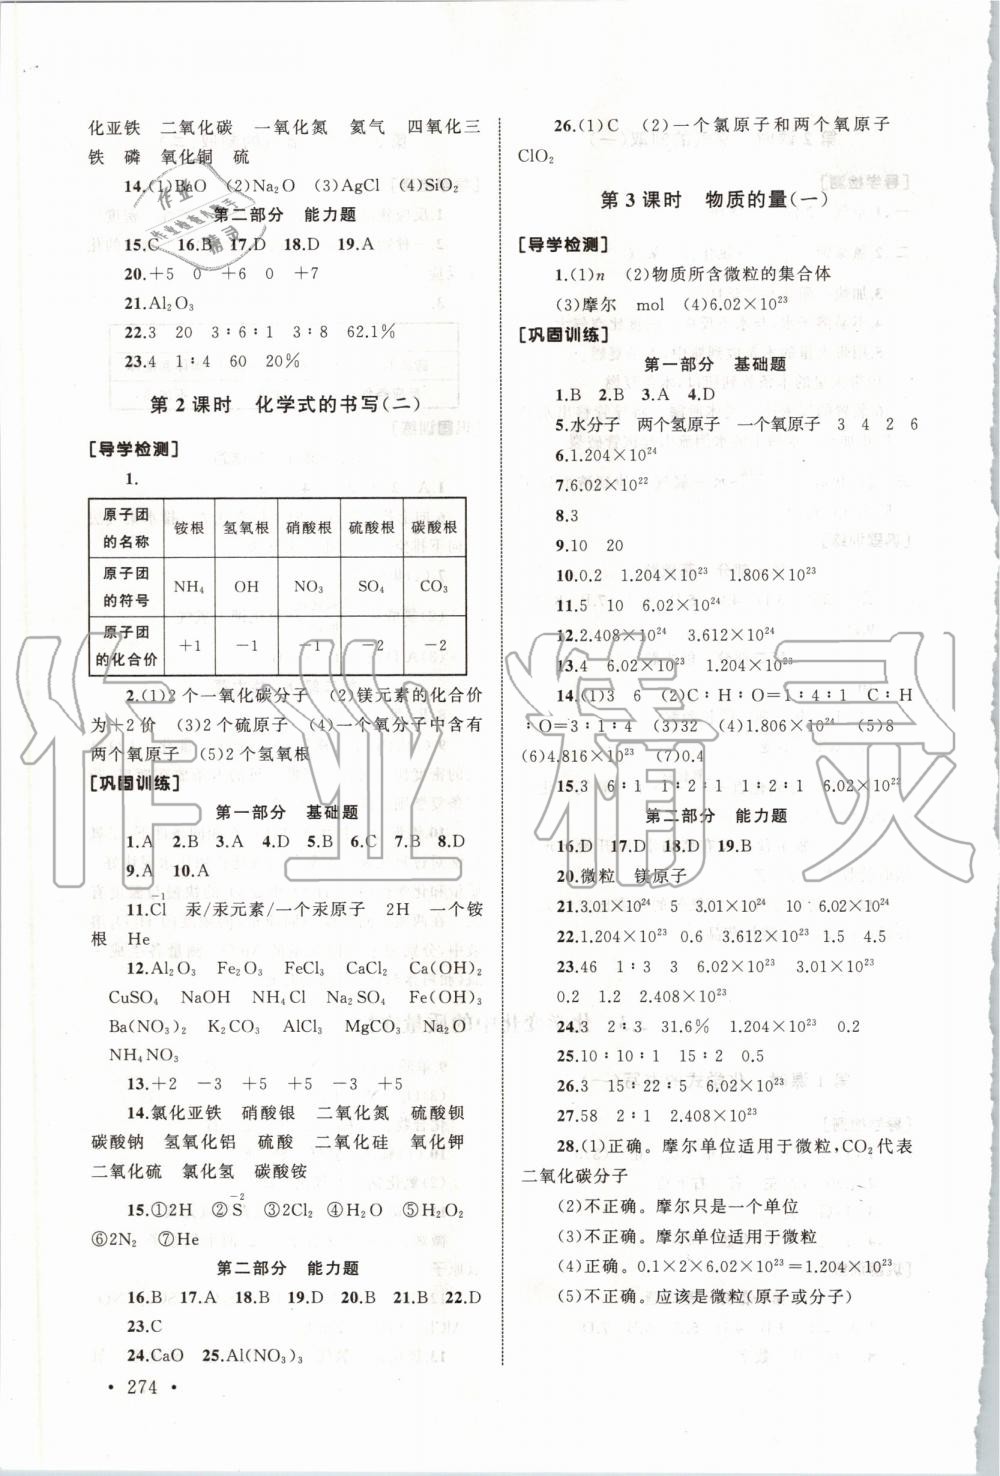 化亚铁 二氧化碳 一氧化氮 氦气 四氧化三
铁 磷 氧化铜 硫
14.(1)BaO (2)Na₂O (3)AgCl (4)SiO₂
第二部分 能力题
15.C 16.B 17.D 18.D 19.A
20.+5 0 +6 0 +7
21.Al₂O₃
22.3 20 3∶6∶1 3∶8 62.1%
23.4 1∶4 60 20%
第2课时 化学式的书写(二)
[导学检测]
1.
原子团的名称 铵根 氢氧根 硝酸根 硫酸根 碳酸根
原子团的符号 NH₄ OH NO₃ SO₄ CO₃
原子团的化合价 +1 −1 −1 −2 −2
2.(1)2个一氧化碳分子 (2)镁元素的化合价
为+2价 (3)2个硫原子 (4)一个氧分子中含有
两个氧原子 (5)2个氢氧根
[巩固训练]
第一部分 基础题
1.A 2.B 3.A 4.D 5.B 6.C 7.B 8.D
9.A 10.A
11.Cl⁻¹ 汞/汞元素/一个汞原子 2H 一个铵
根 He
12.Al₂O₃ Fe₂O₃ FeCl₃ CaCl₂ Ca(OH)₂
CuSO₄ NaOH NH₄Cl Na₂SO₄ Fe(OH)₃
Ba(NO₃)₂ K₂CO₃ AlCl₃ MgCO₃ Na₂O
NH₄NO₃
13.+2 −3 +5 +5 −3 +5
14.氯化亚铁 硝酸银 二氧化氮 硫酸钡
碳酸钠 氢氧化铝 硫酸 二氧化硅 氧化钾
二氧化硫 氯化氢 碳酸铵
15.①2H ②S⁻² ③2Cl₂ ④H₂O ⑤H₂O₂
⑥2N₂ ⑦He
第二部分 能力题
16.B 17.A 18.B 19.D 20.B 21.B 22.D
23.C
24.CaO 25.Al(NO₃)₃
• 274 •
26.(1)C (2)一个氯原子和两个氧原子
ClO₂
第3课时 物质的量(一)
[导学检测]
1.(1)n (2)物质所含微粒的集合体
(3)摩尔 mol (4)6.02×10²³
[巩固训练]
第一部分 基础题
1.B 2.B 3.A 4.D
5.水分子 两个氢原子 一个氧原子 3 4 2 6
6.1.204×10²⁴
7.6.02×10²²
8.3
9.10 20
10.0.2 1.204×10²³ 1.806×10²³
11.5 10 6.02×10²⁴
12.2.408×10²⁴ 3.612×10²⁴
13.4 6.02×10²³ 1.204×10²³
14.(1)3 6 (2)C∶H∶O=1∶4∶1 C∶H
∶O=3∶1∶4 (3)32 (4)1.806×10²⁴ (5)8
(6)4.816×10²³ (7)0.4
15.3 6∶1 1∶2∶1 1∶2∶1 6.02×10²²
第二部分 能力题
16.D 17.D 18.D 19.B
20.微粒 镁原子
21.3.01×10²⁴ 5 3.01×10²⁴ 10 6.02×10²⁴
22.1.204×10²³ 0.6 3.612×10²³ 1.5 4.5
23.46 1∶3 3 6.02×10²³ 3.01×10²³
0.2 1.2 2.408×10²³
24.3 2∶3 31.6% 1.204×10²³ 0.2
25.10∶10∶1 15∶2 0.5
26.3 15∶22∶5 6.02×10²³
27.58 2∶1 2.408×10²³
28.(1)正确。摩尔单位适用于微粒,CO₂代表
二氧化碳分子
(2)不正确。摩尔只是一个单位
(3)不正确。摩尔单位适用于微粒
(4)正确。0.1×2×6.02×10²³=1.204×10²³
(5)不正确。应该是微粒(原子或分子)
作业精灵